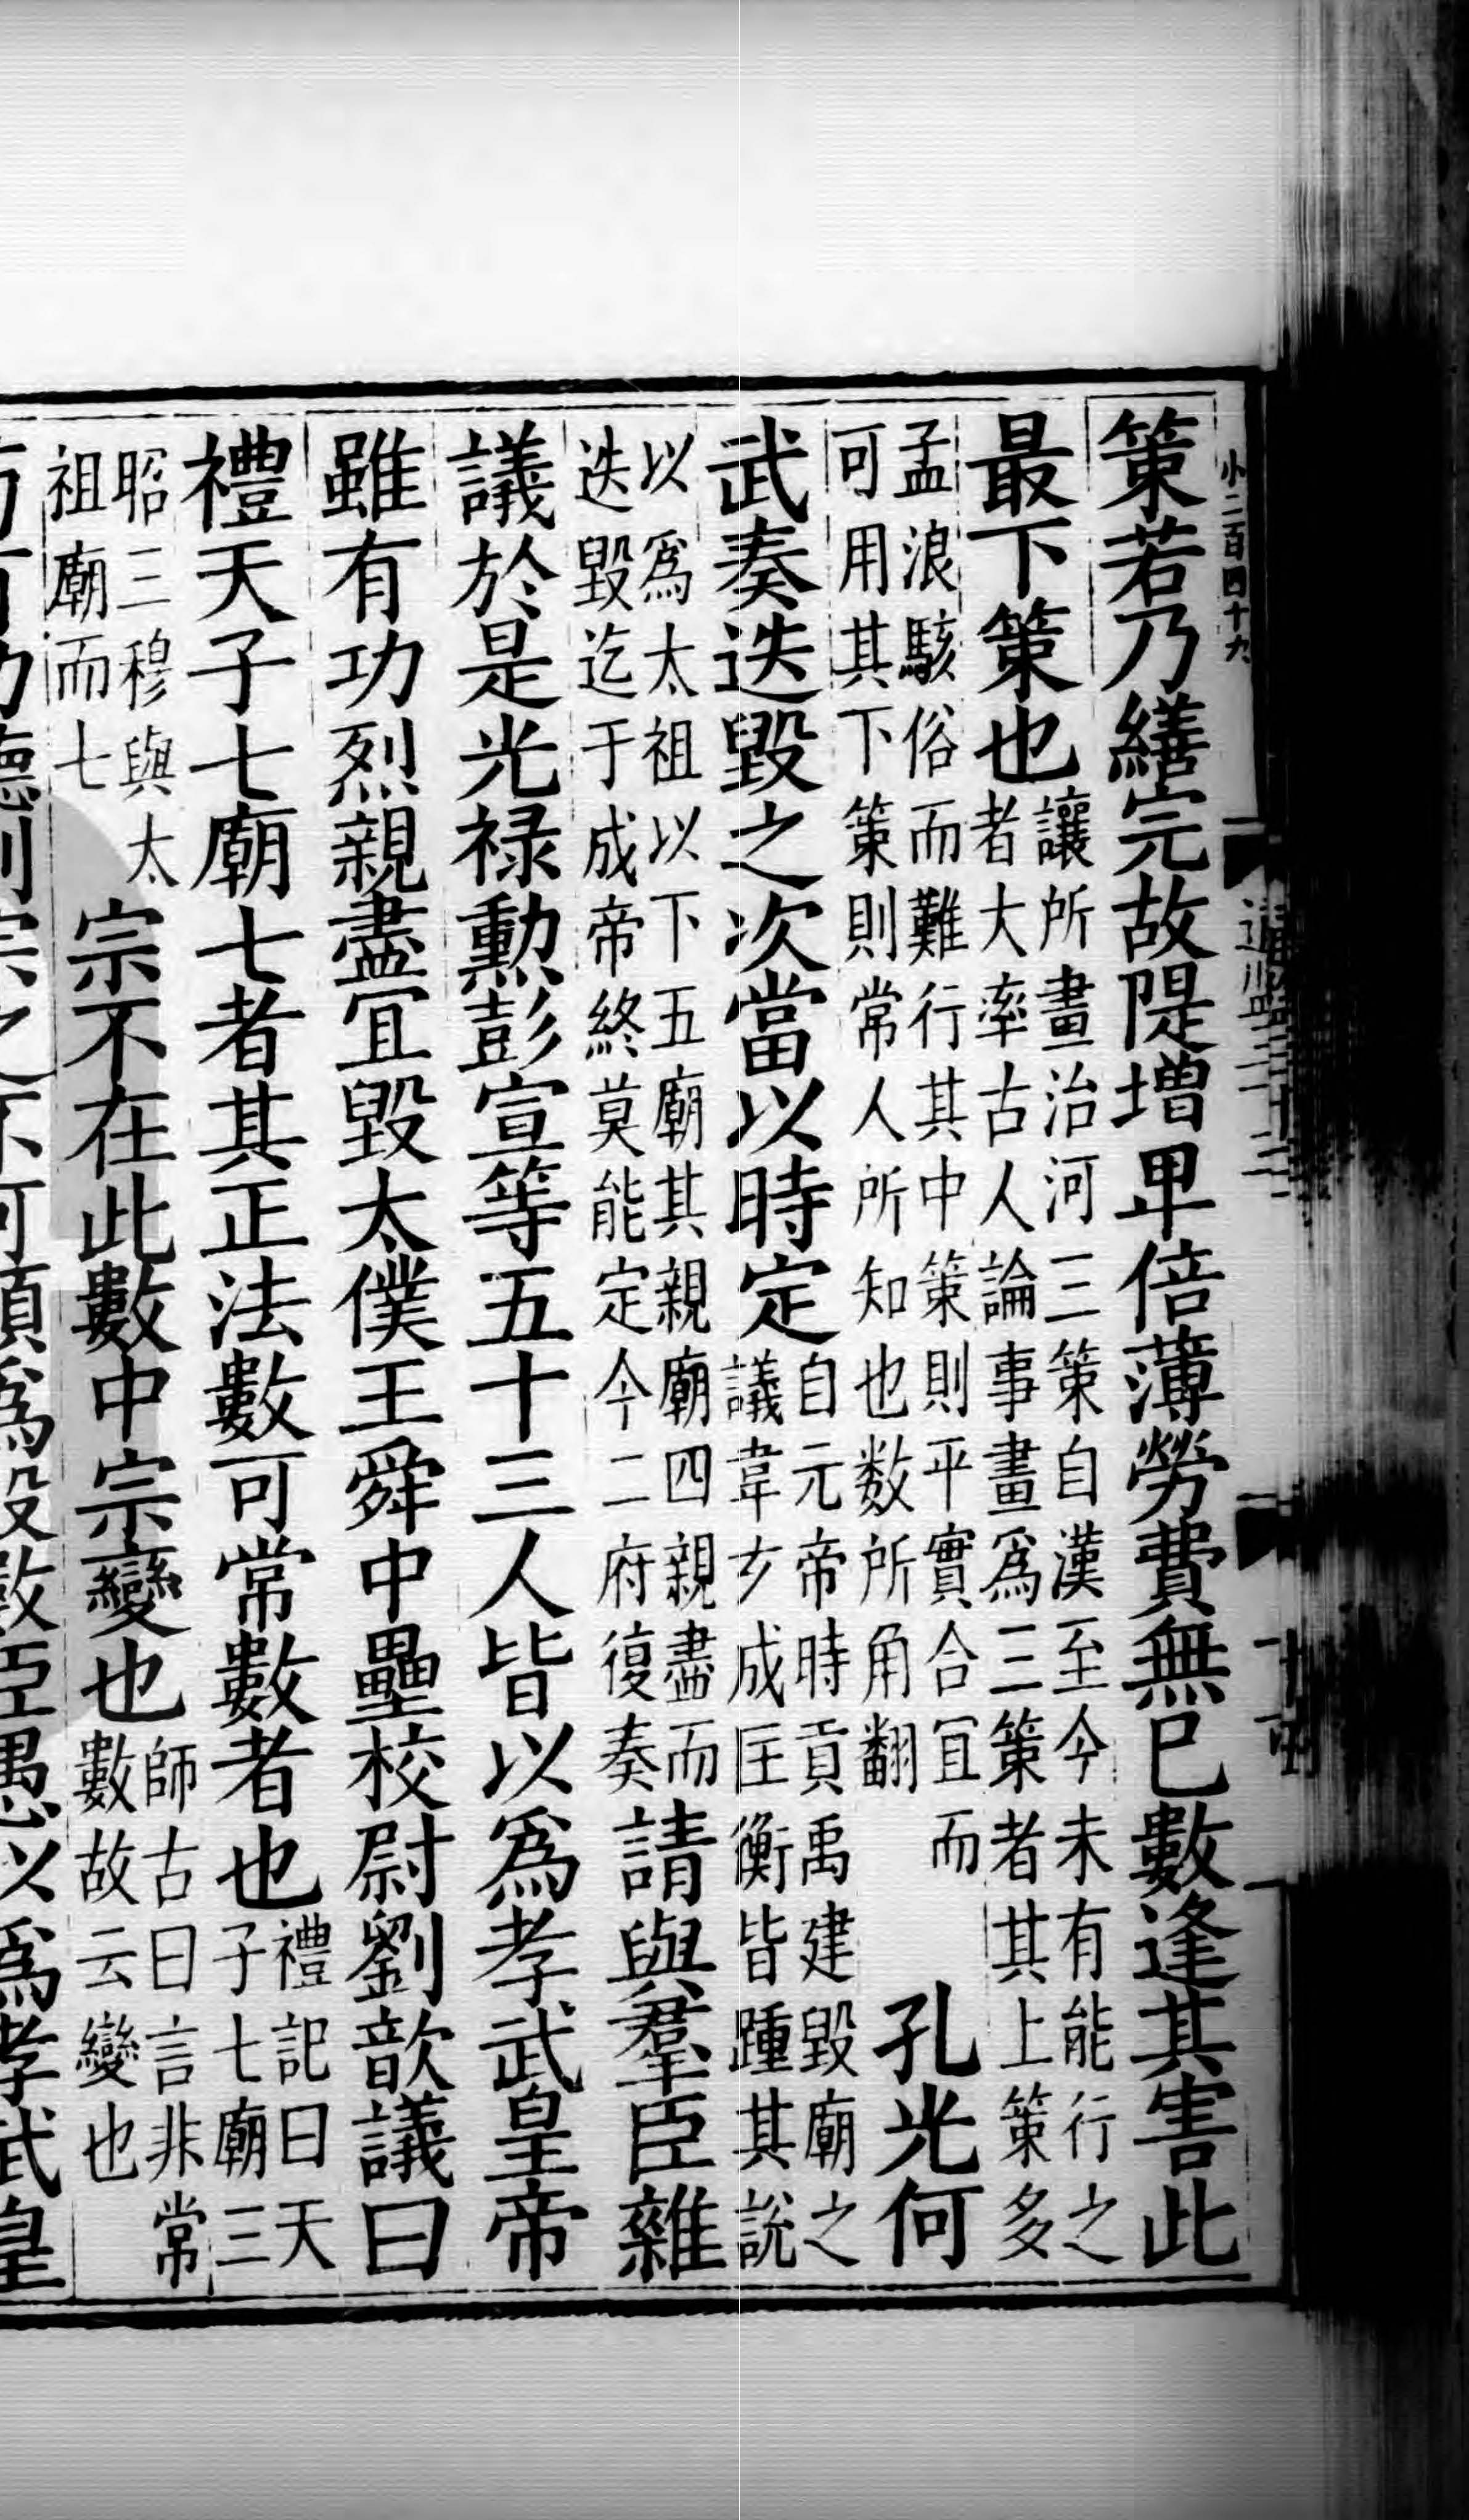 小二百四十九
策若乃繕完故隄増卑倍薄勞費無已數逢其害此
最下策也讓所畫治河三策自漢至今未有能行之
者大率古人論事畫為三策者其上策多
孟浪駭俗而難行其中策則平實合宜而
可用其下策則常人所知也数所角翻
孔光何
武奏迭毀之次當以時定自元帝時貢禹建毀廟之
議韋玄成匡衡皆踵其說
以爲太祖以下五廟其親廟四親盡而
迭毀迄于成帝終莫能定今二府復奏
請與羣臣雜
議於是光禄勳彭宣等五十三人皆以爲孝武皇帝
雖有功烈親盡宜毀太僕王舜中壘校尉劉歆議曰
禮天子七廟七者其正法數可常數者也禮記曰天
子七廟三
昭三穆與太
祖廟而七
宗不在此數中宗變也師古曰言非常
數故云變也